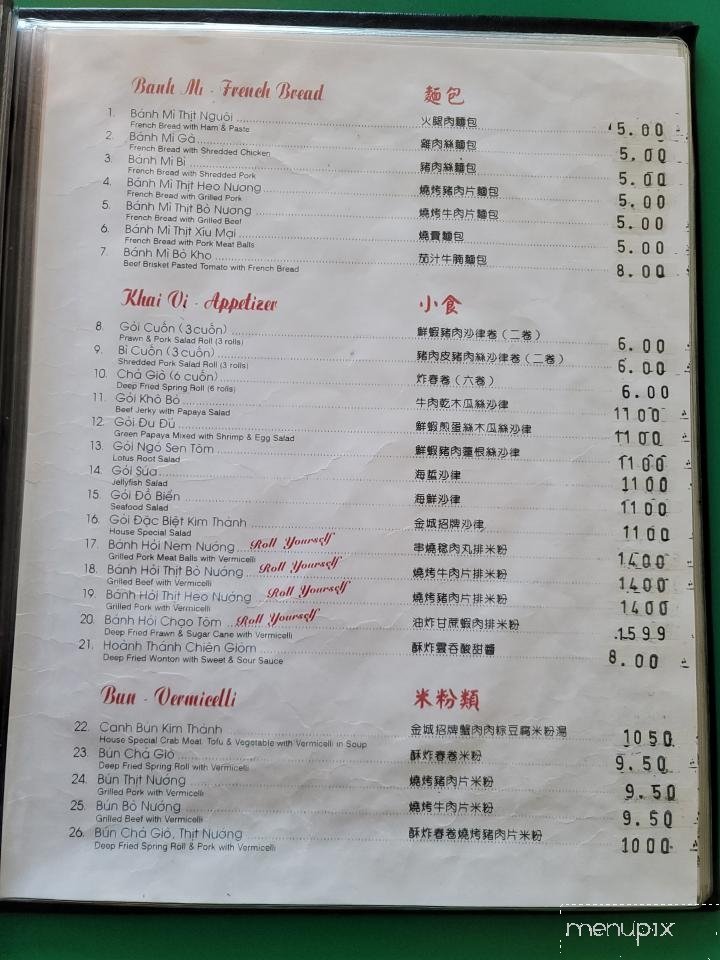 Banh Mi - French Bread 麵包
1. Bánh Mì Thịt Nguội 火腿肉麵包 5.00
French Bread with Ham & Paste
2. Bánh Mì Gà 雞肉絲麵包 5.00
French Bread with Shredded Chicken
3. Bánh Mì Bì 豬肉絲麵包 5.00
French Bread with Shredded Pork
4. Bánh Mì Thịt Heo Nướng 燒烤豬肉片麵包 5.00
French Bread with Grilled Pork
5. Bánh Mì Thịt Bò Nướng 燒烤牛肉片麵包 5.00
French Bread with Grilled Beef
6. Bánh Mì Thịt Xíu Mại 燒賣麵包 5.00
French Bread with Pork Meat Balls
7. Bánh Mì Bò Kho 茄汁牛腩麵包 8.00
Beef Brisket Pasted Tomato with French Bread
Khai Vi - Appetizer 小食
8. Gỏi Cuốn (3 cuốn) 鮮蝦豬肉沙律卷（二卷） 6.00
Prawn & Pork Salad Roll (3 rolls)
9. Bì Cuốn (3 cuốn) 豬肉皮豬肉絲沙律卷（二卷） 6.00
Shredded Pork Salad Roll (3 rolls)
10. Chả Giò (6 cuốn) 炸春卷（六卷） 6.00
Deep Fried Spring Roll (6 rolls)
11. Gỏi Khô Bò 牛肉乾木瓜絲沙律 11 00
Beef Jerky with Papaya Salad
12. Gỏi Đu Đủ 鮮蝦煎蛋絲木瓜絲沙律 11 00
Green Papaya Mixed with Shrimp & Egg Salad
13. Gỏi Ngó Sen Tôm 鮮蝦豬肉蓮根絲沙律 11 00
Lotus Root Salad
14. Gỏi Sứa 海蜇沙律 11 00
Jellyfish Salad
15. Gỏi Đồ Biển 海鮮沙律 11 00
Seafood Salad
16. Gỏi Đặc Biệt Kim Thành 金城招牌沙律 11 00
House Special Salad
17. Bánh Hỏi Nem Nướng Roll Yourself 串燒豬肉丸排米粉 14.00
Grilled Pork Meat Balls with Vermicelli
18. Bánh Hỏi Thịt Bò Nướng Roll Yourself 燒烤牛肉片排米粉 14 00
Grilled Beef with Vermicelli
19. Bánh Hỏi Thịt Heo Nướng Roll Yourself 燒烤豬肉片排米粉 14 00
Grilled Pork with Vermicelli
20. Bánh Hỏi Chạo Tôm Roll Yourself 油炸甘蔗蝦肉排米粉 .15 9 9
Deep Fried Prawn & Sugar Cane with Vermicelli
21. Hoành Thánh Chiên Giòm 酥炸雲吞酸甜醬 8.00
Deep Fried Wonton with Sweet & Sour Sauce
Bun - Vermicelli 米粉類
22. Canh Bún Kim Thành 金城招牌蟹肉肉粽豆腐米粉湯 10 50
House Special Crab Meat, Tofu & Vegetable with Vermicelli in Soup
23. Bún Chả Giò 酥炸春卷米粉 9.50
Deep Fried Spring Roll with Vermicelli
24. Bún Thịt Nướng 燒烤豬肉片米粉 9.50
Grilled Pork with Vermicelli
25. Bún Bò Nướng 燒烤牛肉片米粉 9.50
Grilled Beef with Vermicelli
26. Bún Chả Giò, Thịt Nướng 酥炸春卷燒烤豬肉片米粉 10 00
Deep Fried Spring Roll & Pork with Vermicelli
menupix